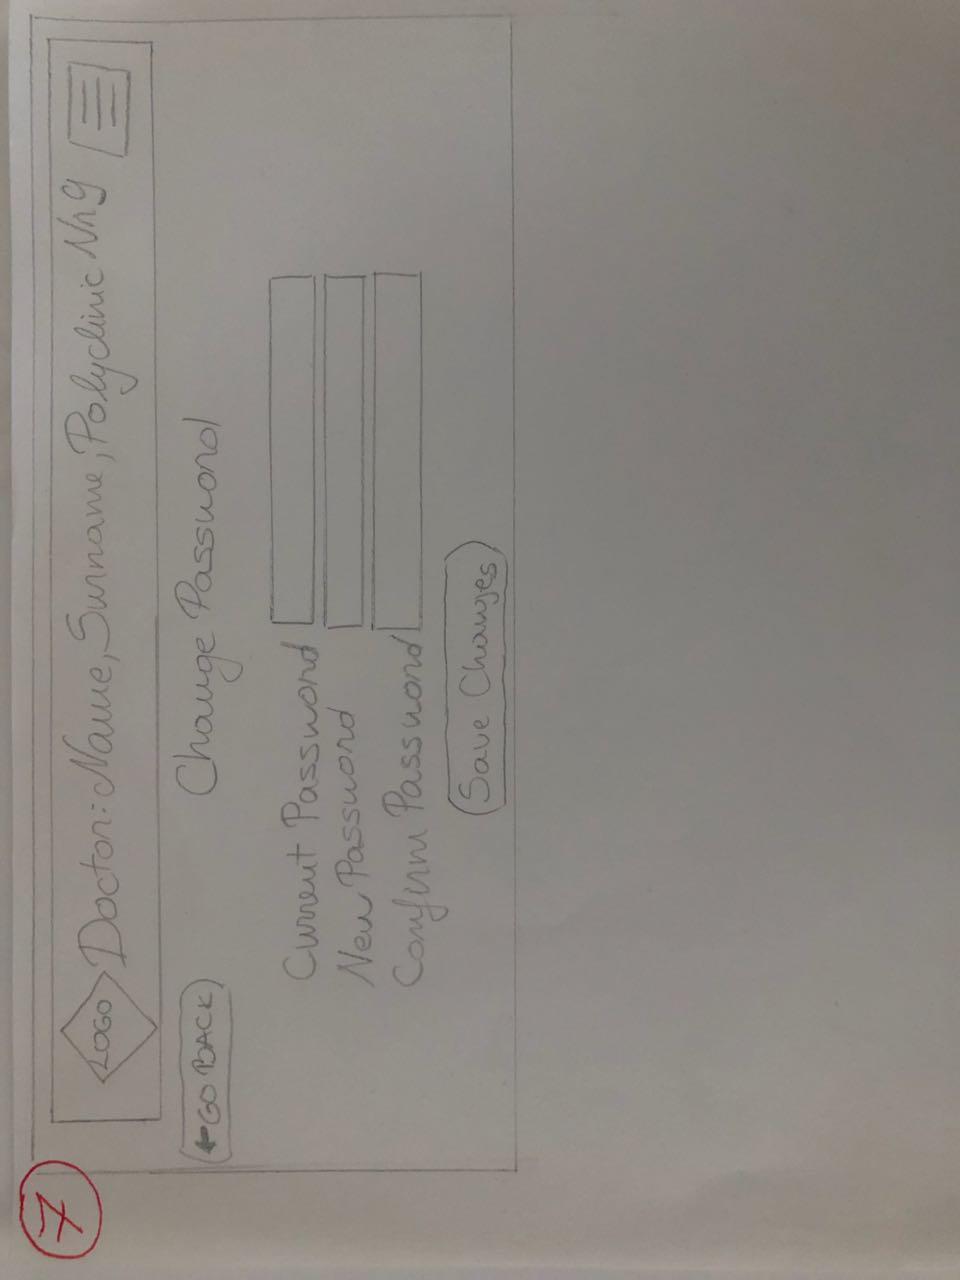 7
LOGO Doctor: Name, Surname, Polyclinic Nr9
GO BACK
Change Password
Current Password
New Password
Confirm Password
Save Changes